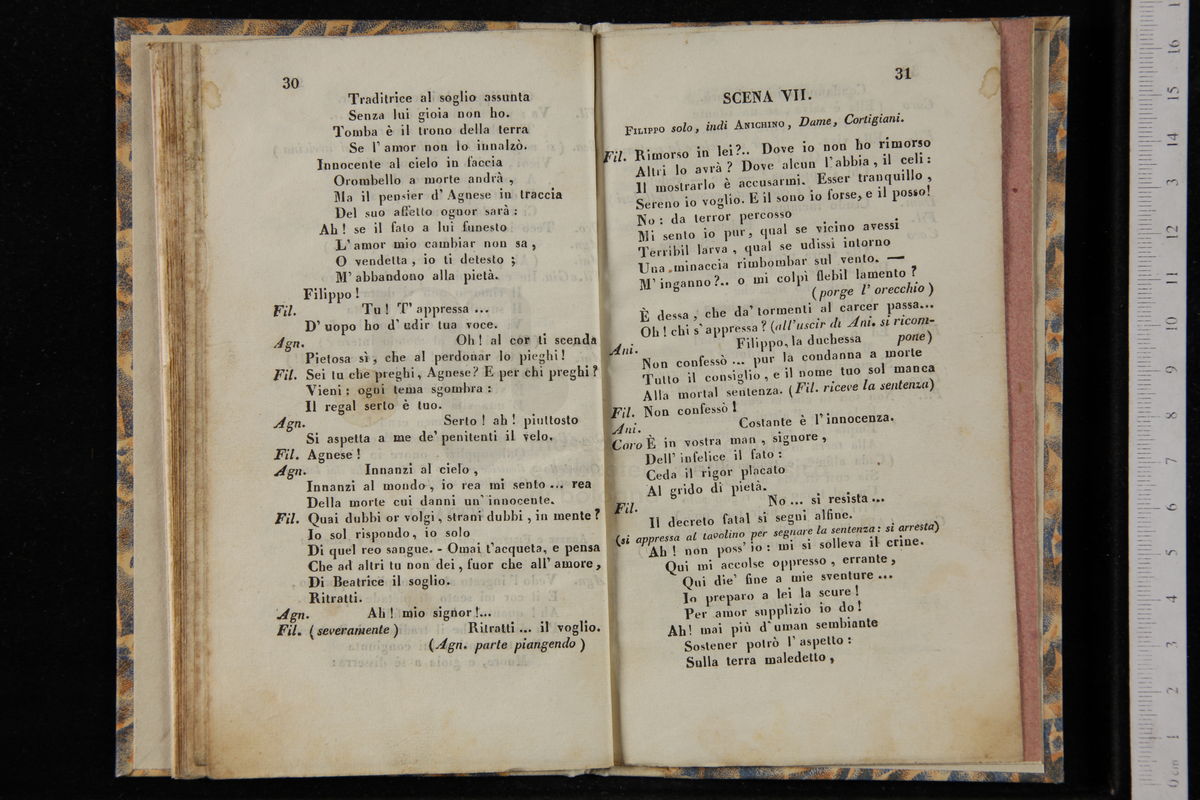 30
Traditrice al soglio assunta
Senza lui gioia non ho.
Tomba è il trono della terra
Se l' amor non lo innalzò.
Innocente al cielo in faccia
Orombello a morte andrà ,
Ma il pensier d' Agnese in traccia
Del suo affetto ognor sarà :
Ah ! se il fato a lui funesto
L' amor mio cambiar non sa ,
O vendetta , io ti detesto ;
M' abbandono alla pietà.
Filippo !
Fil. Tu ! T' appressa ...
D' uopo ho d' udir tua voce.
Agn. Oh ! al cor ti scenda
Pietosa sì , che al perdonar lo pieghi !
Fil. Sei tu che preghi , Agnese ? E per chi preghi ?
Vieni : ogni tema sgombra :
Il regal serto è tuo.
Agn. Serto ! ah ! piuttosto
Si aspetta a me de' penitenti il velo.
Fil. Agnese !
Agn. Innanzi al cielo ,
Innanzi al mondo , io rea mi sento ... rea
Della morte cui danni un' innocente.
Fil. Quai dubbi or volgi , strani dubbi , in mente ?
Io sol rispondo, io solo
Di quel reo sangue. - Omai t'acqueta, e pensa
Che ad altri tu non dei , fuor che all' amore ,
Di Beatrice il soglio.
Ritratti.
Agn. Ah ! mio signor !...
Fil. (severamente) Ritratti ... il voglio.
(Agn. parte piangendo )
31
SCENA VII.
FILIPPO solo, indi ANICHINO, Dame, Cortigiani.
Fil. Rimorso in lei ?.. Dove io non ho rimorso
Altri lo avrà ? Dove alcun l' abbia , il celi :
Il mostrarlo è accusarmi. Esser tranquillo ,
Sereno io voglio. E il sono io forse, e il posso!
No : da terror percosso
Mi sento io pur, qual se vicino avessi
Terribil larva , qual se udissi intorno
Una minaccia rimbombar sul vento. —
M' inganno ?.. o mi colpì flebil lamento ?
(porge l' orecchio )
È dessa , che da' tormenti al carcer passa...
Oh ! chi s' appressa ? (all'uscir di Ani. si ricom-
Ani. Filippo, la duchessa pone)
Non confessò ... pur la condanna a morte
Tutto il consiglio , e il nome tuo sol manca
Alla mortal sentenza. (Fil. riceve la sentenza)
Fil. Non confessò !
Ani. Costante è l' innocenza.
Coro È in vostra man , signore ,
Dell' infelice il fato :
Ceda il rigor placato
Al grido di pietà.
Fil. No ... si resista ...
Il decreto fatal si segni alfine.
(si appressa al tavolino per segnare la sentenza : si arresta)
Ah ! non poss' io : mi si solleva il crine.
Qui mi accolse oppresso , errante ,
Qui die' fine a mie sventure ...
Io preparo a lei la scure !
Per amor supplizio io do !
Ah! mai più d' uman sembiante
Sostener potrò l' aspetto :
Sulla terra maledetto ,